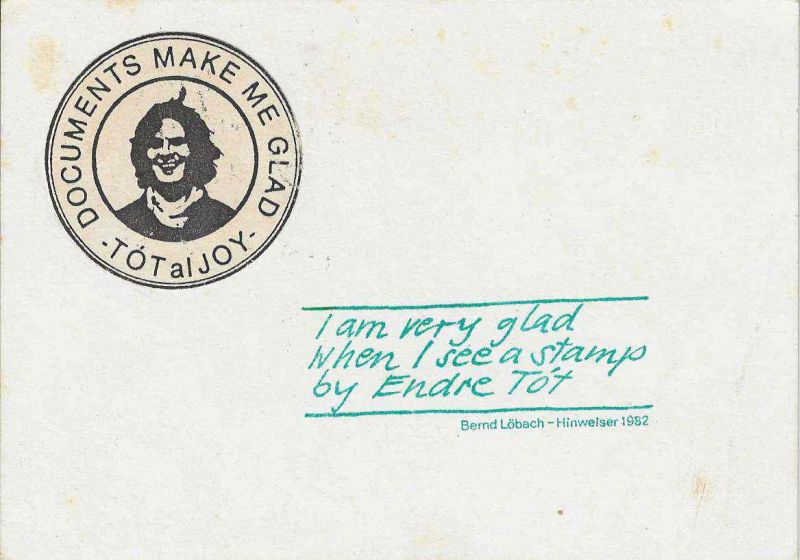 DOCUMENTS MAKE ME GLAD
-TÓTalJOY-
I am very glad
when I see a stamp
by Endre Tót
Bernd Löbach – Hinweiser 1982